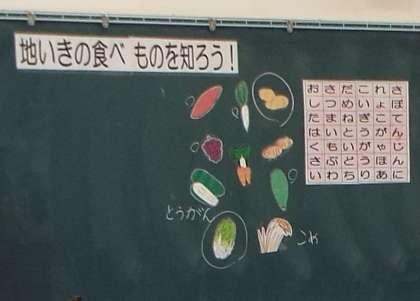 地いきの食べものを知ろう！
おさだこれさ
しつめいょぼ
たまねぎこて
はいとうがん
くもいがゃじ
さぶとうほん
いわちりあに
とうがん